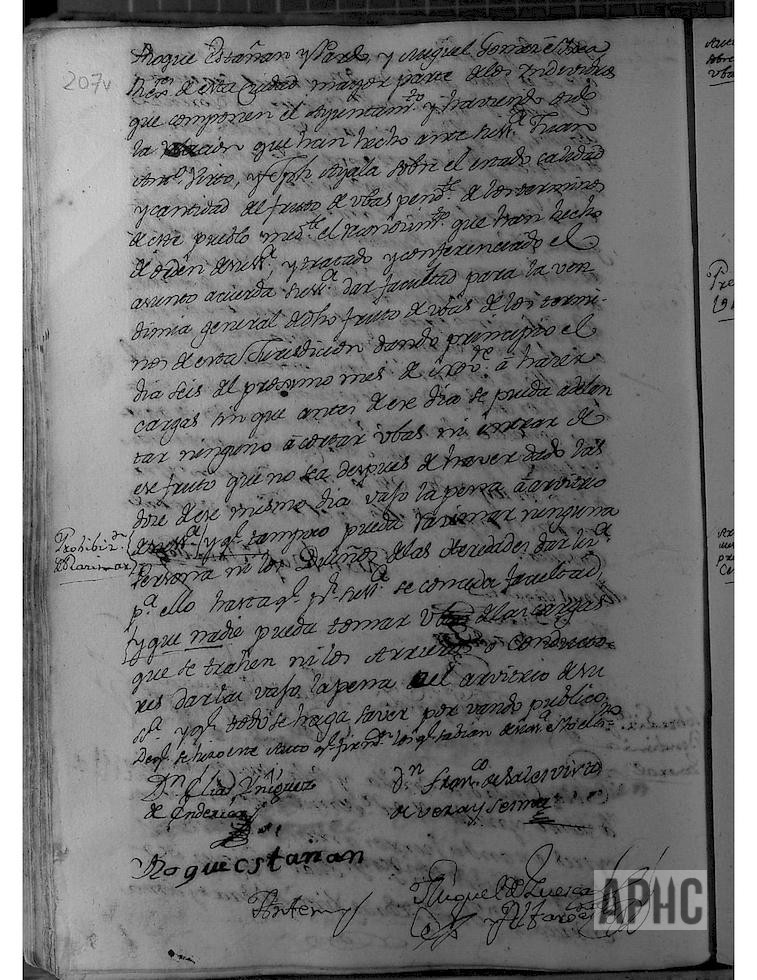 207v
Roque Estañan y Pardo, y Miguel
de esta Ciudad mayor parte de los Individuos
que componen el Ayuntam.to y haviendo oido
la relacion que han hecho ante su S.a Juan
y Jph Ayala sobre el estado calidad
y cantidad del fruto de ubas pend.te de los terminos
de este pueblo med.te el reconosim.to que han hecho
de orden de su S.a, y tratado y conferenciado el
asunto acuerda su S.a dar facultad para la ven
dimia general de dho fruto de ubas de los termi-
nos de esta Jurisdicion dando principio el
dia seis del proximo mes de a hazer
cargas sin que antes de ese dia se pueda adelan
tar ninguno a cortar ubas ni entrar de
ese fruto que no sea despues de haver dado las
doze de ese mismo dia vajo la pena a arvitrio
de su S.a y q.e tampoco pueda ninguna
Prohibiz.on
persona ni los Dueños de las Heredades dar liz.a
p.a ello hasta q.e p.r su S.a se conceda facultad,
y que nadie pueda tomar ubas de las cargas
que se trahen ni los Arrieros o conducto-
res darlas vajo la pena al arvitrio de su
S.a y q.e todo se haga saver por vando publico,
D.n Elias Yñiguez
D.n Fran.co de Sales Vivero
de vera y
Roque estañan
Antemy
Miguel de Huesca
y Alfaro
APHC